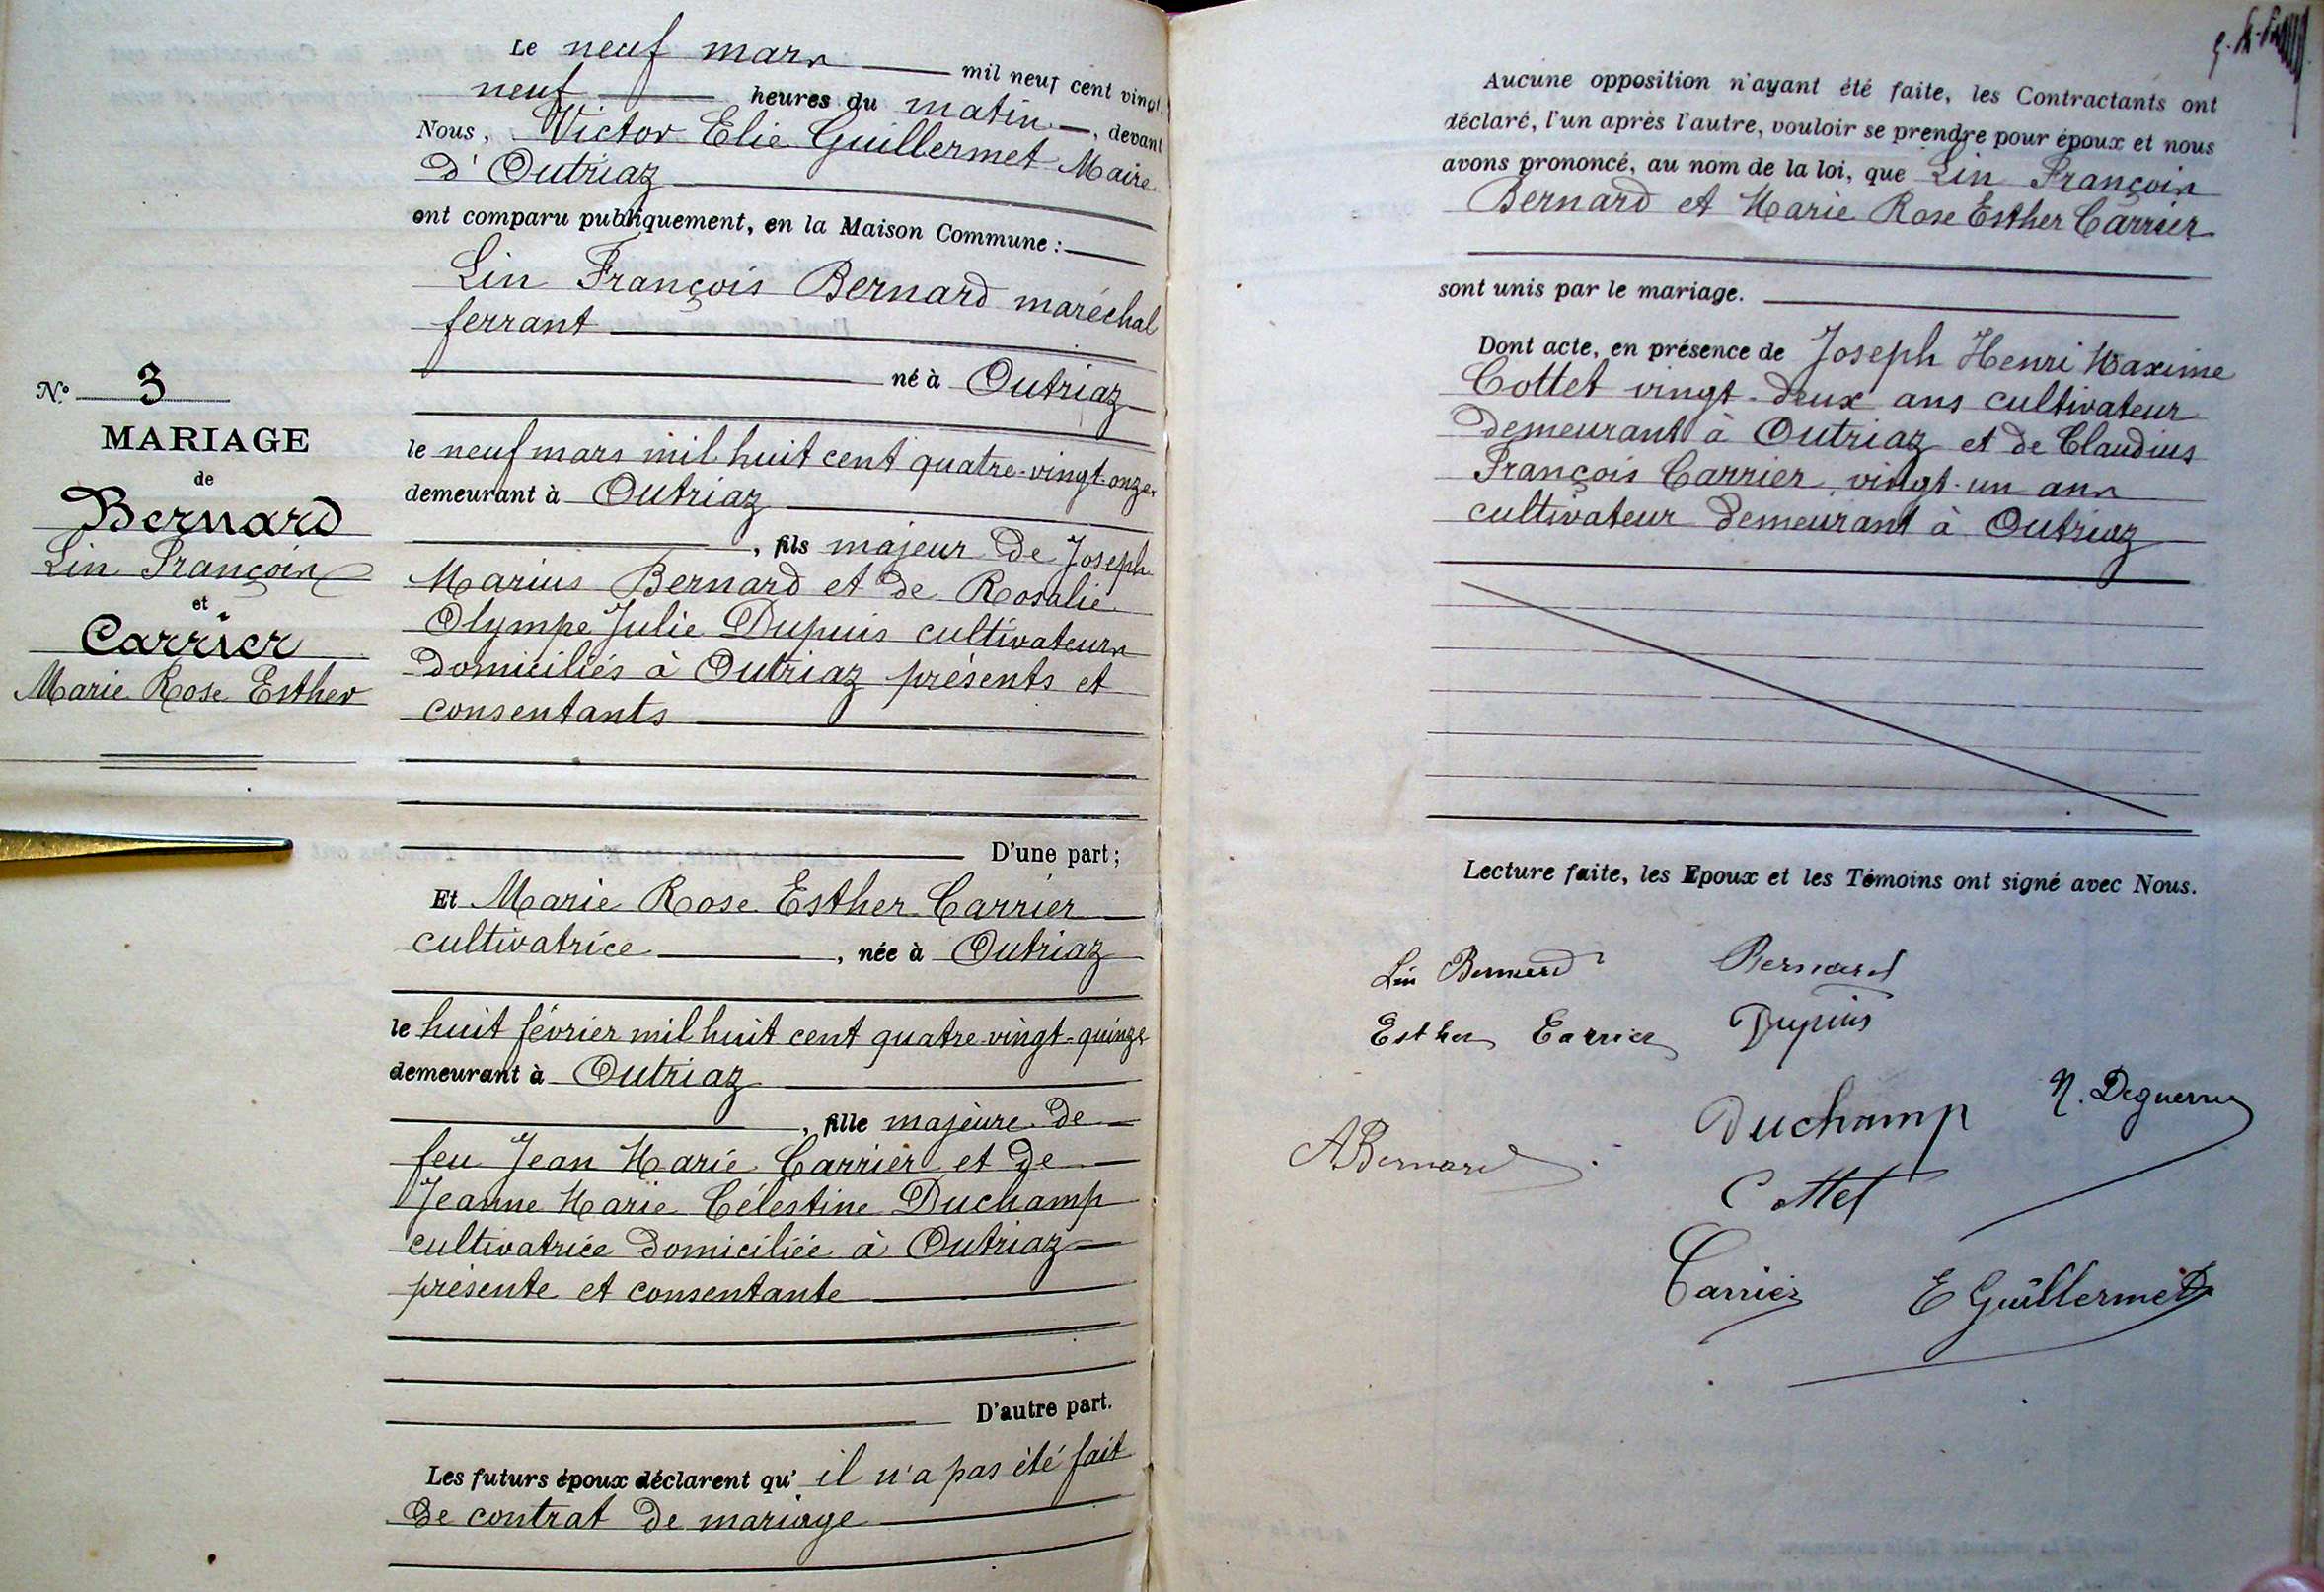 Le neuf mars mil neuf cent vingt
neuf heures du matin, devant
Nous, Victor Elie Guillermet Maire
d'Outriaz
ont comparu publiquement, en la Maison Commune :
Lin François Bernard maréchal
ferrant
né à Outriaz
le neuf mars mil huit cent quatre-vingt-onze
demeurant à Outriaz
, fils majeur de Joseph
Marius Bernard et de Rosalie
Olympe Julie Dupuis cultivateurs
domiciliés à Outriaz présents et
consentants
D'une part ;
Et Marie Rose Esther Carrier
cultivatrice, née à Outriaz
le huit février mil huit cent quatre-vingt-quinze
demeurant à Outriaz
, fille majeure de
feu Jean Marie Carrier et de
Jeanne Marie Célestine Duchamp
cultivatrice domiciliée à Outriaz
présente et consentante
D'autre part.
Les futurs époux déclarent qu'il n'a pas été fait
de contrat de mariage
N.º 3
MARIAGE
de
Bernard
Lin François
et
Carrier
Marie Rose Esther
Aucune opposition n'ayant été faite, les Contractants ont
déclaré, l'un après l'autre, vouloir se prendre pour époux et nous
avons prononcé, au nom de la loi, que Lin François
Bernard et Marie Rose Esther Carrier
sont unis par le mariage.
Dont acte, en présence de Joseph Henri Maxime
Cottet vingt-deux ans cultivateur
demeurant à Outriaz et de Claudius
François Carrier, vingt-un ans
cultivateur demeurant à Outriaz
Lecture faite, les Epoux et les Témoins ont signé avec Nous.
Lin Bernard Bernard
Esther Carrier Dupuis
Duchamp N.
ABernard
Cottet
Carrier E Guillermet